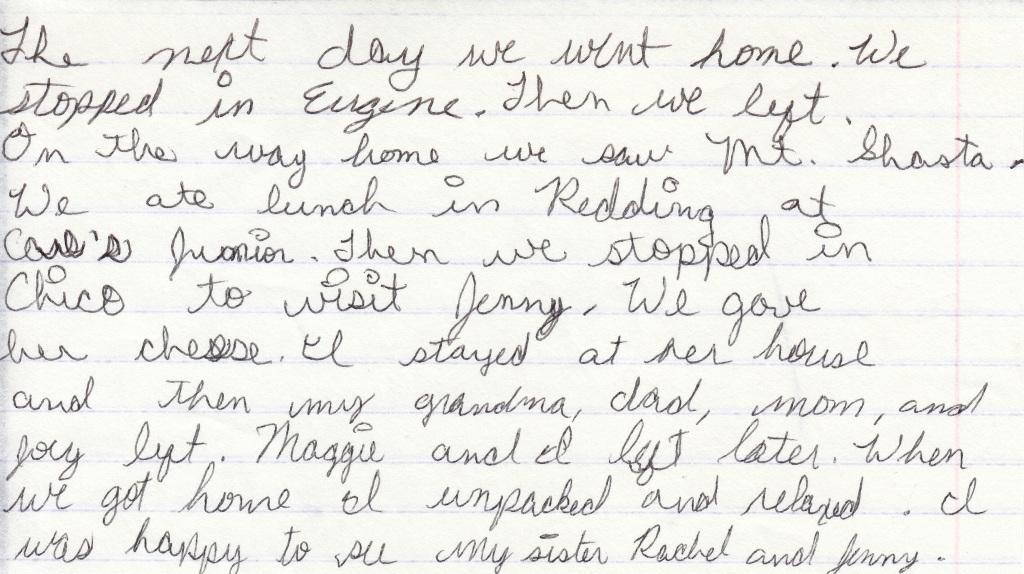 The next day we went home. We
stopped in Eugene. Then we left.
On the way home we saw Mt. Shasta.
We ate lunch in Redding at
Carl's Junior. Then we stopped in
Chico to visit Jenny. We gave
her cheese. I stayed at her house
and then my grandma, dad, mom, and
joey left. Maggie and I left later. When
we got home I unpacked and relaxed. I
was happy to see my sister Rachel and Jenny.